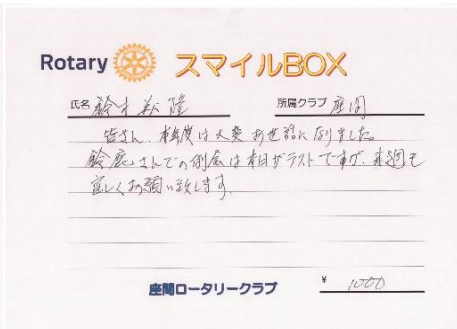 Rotary スマイルBOX
氏名 鈴木 隆 所属クラブ 座間
皆さん、本年度は大変お世話になりました。
鈴鹿さんでの例会は本日がラストですが、来週も
宜しくお願い致します。
座間ロータリークラブ ¥ 1000